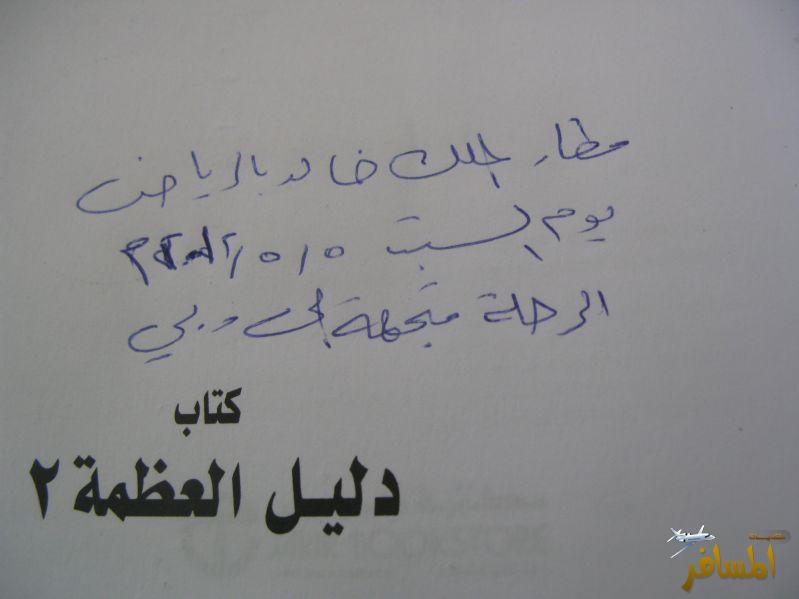 مطار الملك خالد بالرياض
يوم السبت ٥/٥/٢٠١٢م
الرحلة متجهة إلى دبي
كتاب
دليل العظمة ٢
المسافر